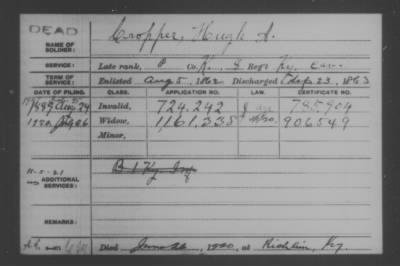 DEAD
NAME OF SOLDIER: Cropper, Hugh A.
SERVICE: Late rank, P Co. K, 9 Reg't Ky. Cav.
TERM OF SERVICE: Enlisted Aug 5, 1862 Discharged Sep 23, 1863
DATE OF FILING. CLASS. APPLICATION NO. LAW. CERTIFICATE NO.
1889 Aug 29 Invalid, 724.242 785.904
1920 Widow, 1,161.335 906549
Minor,
ADDITIONAL SERVICES: B 1 Ky. Inf
REMARKS:
Died 1920, at Ky.